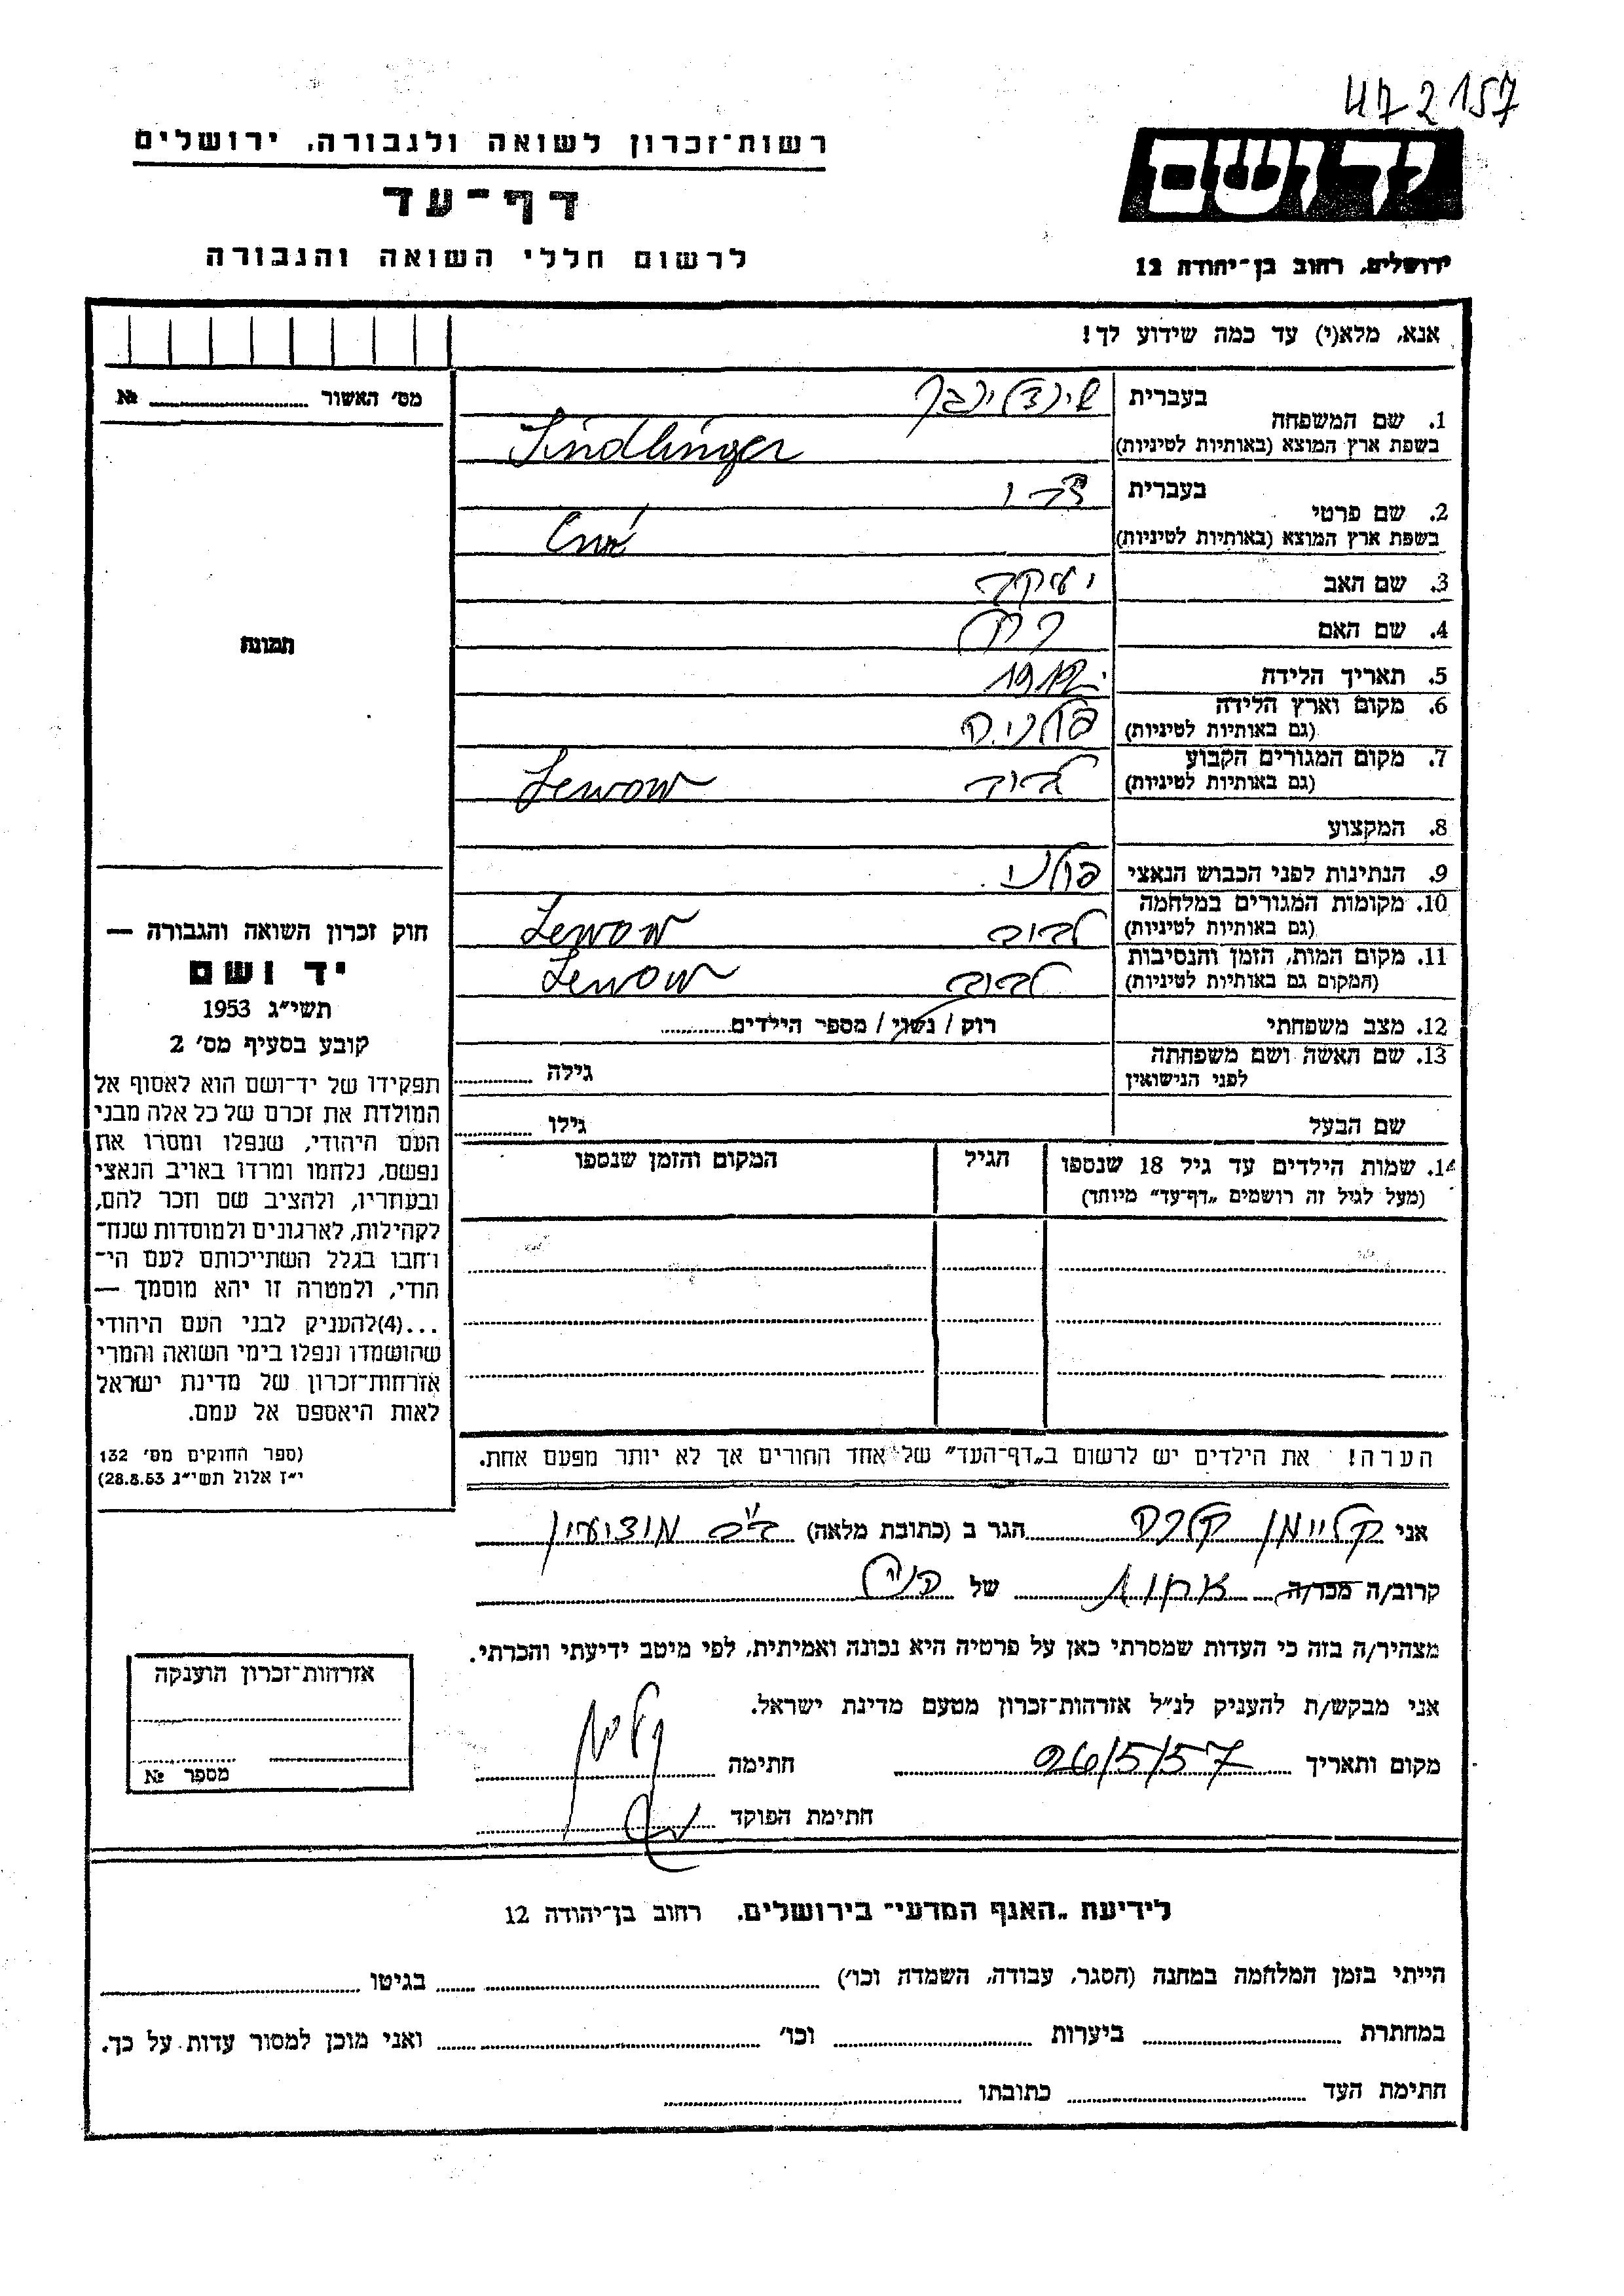 472157
רשות־זכרון לשואה ולגבורה, ירושלים
יד ושם
דף־עד
לרשום חללי השואה והגבורה
ירושלים, רחוב בן־יהודה 12
אנא, מלא(י) עד כמה שידוע לך!
מס׳ האשור № 
1. שם המשפחה
בעברית
בשפת ארץ המוצא (באותיות לטיניות) Sindlinger
2. שם פרטי
בעברית
בשפת ארץ המוצא (באותיות לטיניות)
3. שם האב יעקב
4. שם האם
5. תאריך הלידה
6. מקום וארץ הלידה פולניה
(גם באותיות לטיניות)
7. מקום המגורים הקבוע לבוב Lewow
(גם באותיות לטיניות)
8. המקצוע
9. הנתינות לפני הכבוש הנאצי פולני
10. מקומות המגורים במלחמה לבוב Lewow
(גם באותיות לטיניות)
11. מקום המות, הזמן והנסיבות לבוב Lewow
(המקום גם באותיות לטיניות)
12. מצב משפחתי רוק / נשוי / מספר הילדים
13. שם האשה ושם משפחתה גילה
לפני הנישואין
שם הבעל גילו
14. שמות הילדים עד גיל 18 שנספו הגיל המקום והזמן שנספו
(מעל לגיל זה רושמים „דף־עד” מיוחד)
הערה! את הילדים יש לרשום ב„דף־העד” של אחד ההורים אך לא יותר מפעם אחת.
תמונה
חוק זכרון השואה והגבורה —
יד ושם
תשי״ג 1953
קובע בסעיף מס׳ 2
תפקידו של יד־ושם הוא לאסוף אל
המולדת את זכרם של כל אלה מבני
העם היהודי, שנפלו ומסרו את
נפשם, נלחמו ומרדו באויב הנאצי
ובעוזריו, ולהציב שם וזכר להם,
לקהילות, לארגונים ולמוסדות שנח־
רבו בגלל השתייכותם לעם הי־
הודי, ולמטרה זו יהא מוסמך —
...(4) להעניק לבני העם היהודי
שהושמדו ונפלו בימי השואה והמרי
אזרחות־זכרון של מדינת ישראל
לאות היאספם אל עמם.
(ספר החוקים מס׳ 132
י״ז אלול תשי״ג 28.8.53)
אני קליימן קלרה הגר ב (כתובת מלאה)
קרוב/ה מכר/ה אחות של
מצהיר/ה בזה כי העדות שמסרתי כאן על פרטיה היא נכונה ואמיתית, לפי מיטב ידיעתי והכרתי.
אני מבקש/ת להעניק לנ״ל אזרחות־זכרון מטעם מדינת ישראל.
מקום ותאריך 26/5/57 חתימה
חתימת הפוקד
אזרחות־זכרון הוענקה
מספר №
לידיעת „האגף המדעי” בירושלים, רחוב בן־יהודה 12
הייתי בזמן המלחמה במחנה (הסגר, עבודה, השמדה וכו׳) בגיטו
במחתרת ביערות וכו׳ ואני מוכן למסור עדות על כך.
חתימת העד כתובתו